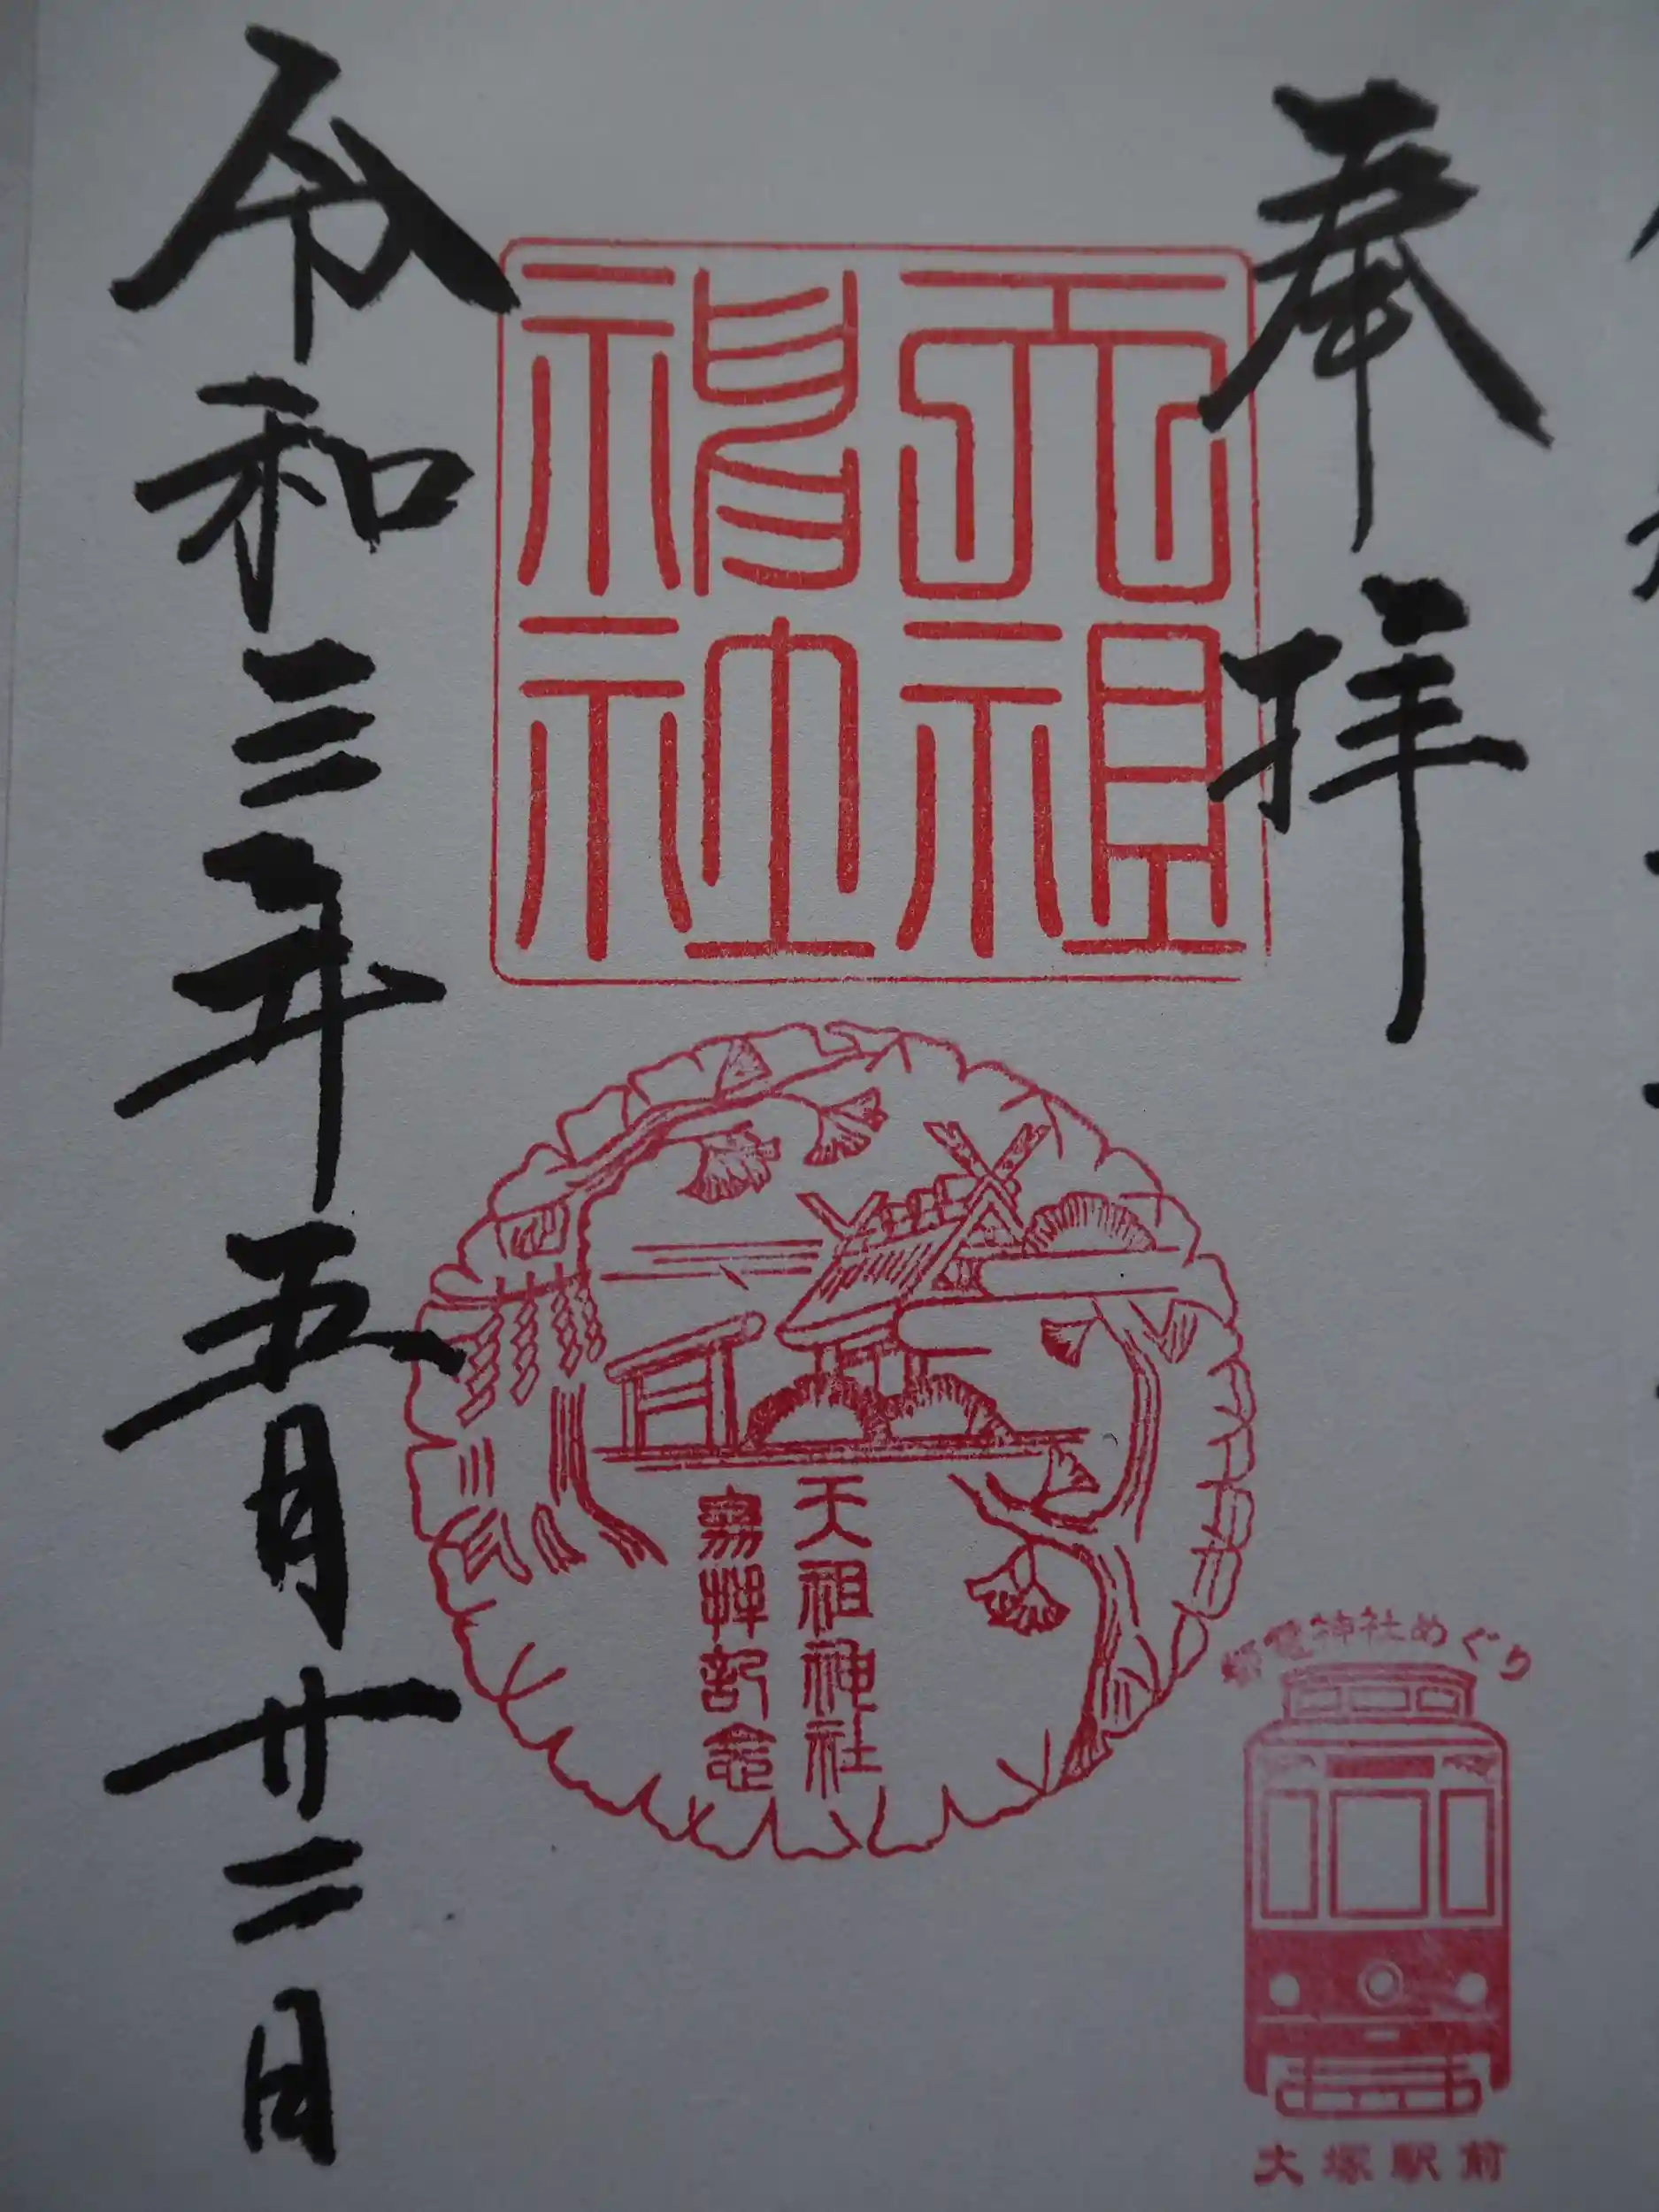 奉拝
天祖
神社
天祖神社
参拝記念
令和三年五月廿二日
都電神社めぐり
大塚駅前